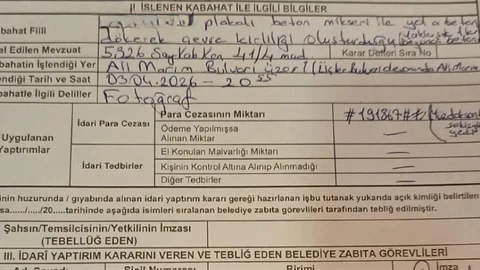 II. İŞLENEN KABAHAT İLE İLGİLİ BİLGİLER
bahat Fiili plakalı beton mikseri ile yola beton
dökerek çevre kirliliği oluşturduğu
al Edilen Mevzuat 5326 Say Kab Kan 41/4 mad. Karar Defteri Sıra No
bahatin İşlendiği Yer Ali Marim Bulvarı üzeri
endiği Tarih ve Saat 03.04.2026 - 20 55
bahatle İlgili Deliller Fotoğraf
Uygulanan
Yaptırımlar
İdari Para Cezası
Para Cezasının Miktarı #191867#₺
Ödeme Yapılmışsa
Alınan Miktar —
İdari Tedbirler
El Konulan Malvarlığı Miktarı —
Kişinin Kontrol Altına Alınıp Alınmadığı —
Diğer Tedbirler —
inin huzurunda / gıyabında alınan idari yaptırım kararı gereği hazırlanan işbu tutanak yukarıda açık kimliği belirtilen
sa...../...../20.....tarihinde aşağıda isimleri sıralanan belediye zabıta görevlileri tarafından tebliğ edilmiştir.
Şahsın/Temsilcisinin/Yetkilinin İmzası
(TEBELLÜĞ EDEN)
III. İDARİ YAPTIRIM KARARINI VEREN VE TEBLİĞ EDEN BELEDİYE ZABITA GÖREVLİLERİ
Adı Soyadı Sicil Numarası Birimi İmza